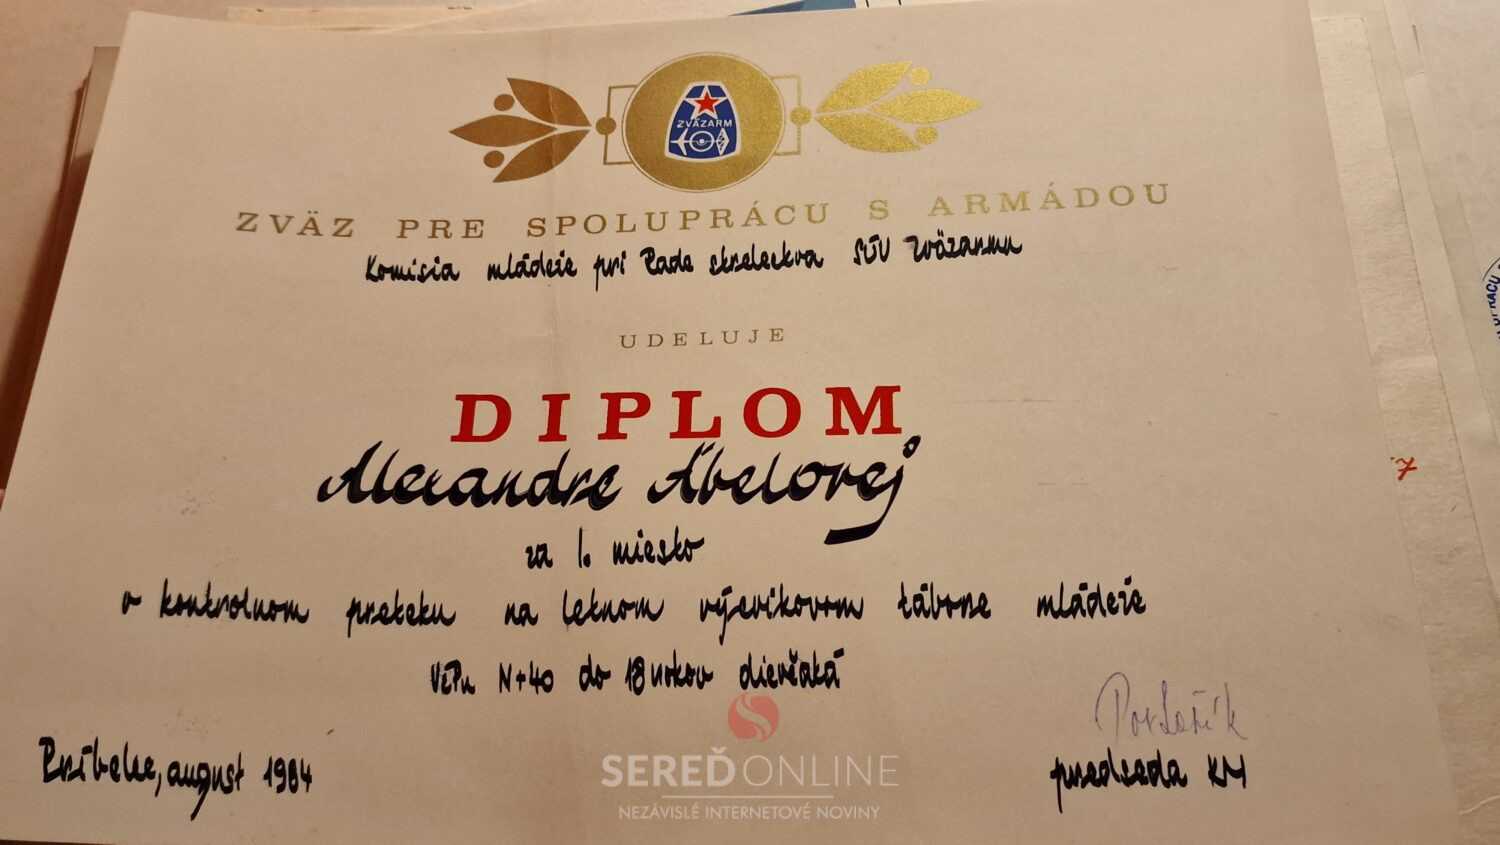 ZVÄZARM
ZVÄZ PRE SPOLUPRÁCU S ARMÁDOU
Komisia mládeže pri Rade streleckva SÚV Zväzarmu
UDELUJE
DIPLOM
Alexandre Ábelovej
za 1. miesto
v kontrolnom preteku na letnom výcvikovom tábore mládeže
VzPu N+40 do 18 rokov dievčatá
Príbelce, august 1984
predseda KM
7
SEREĎONLINE
NEZÁVISLÉ INTERNETOVÉ NOVINY